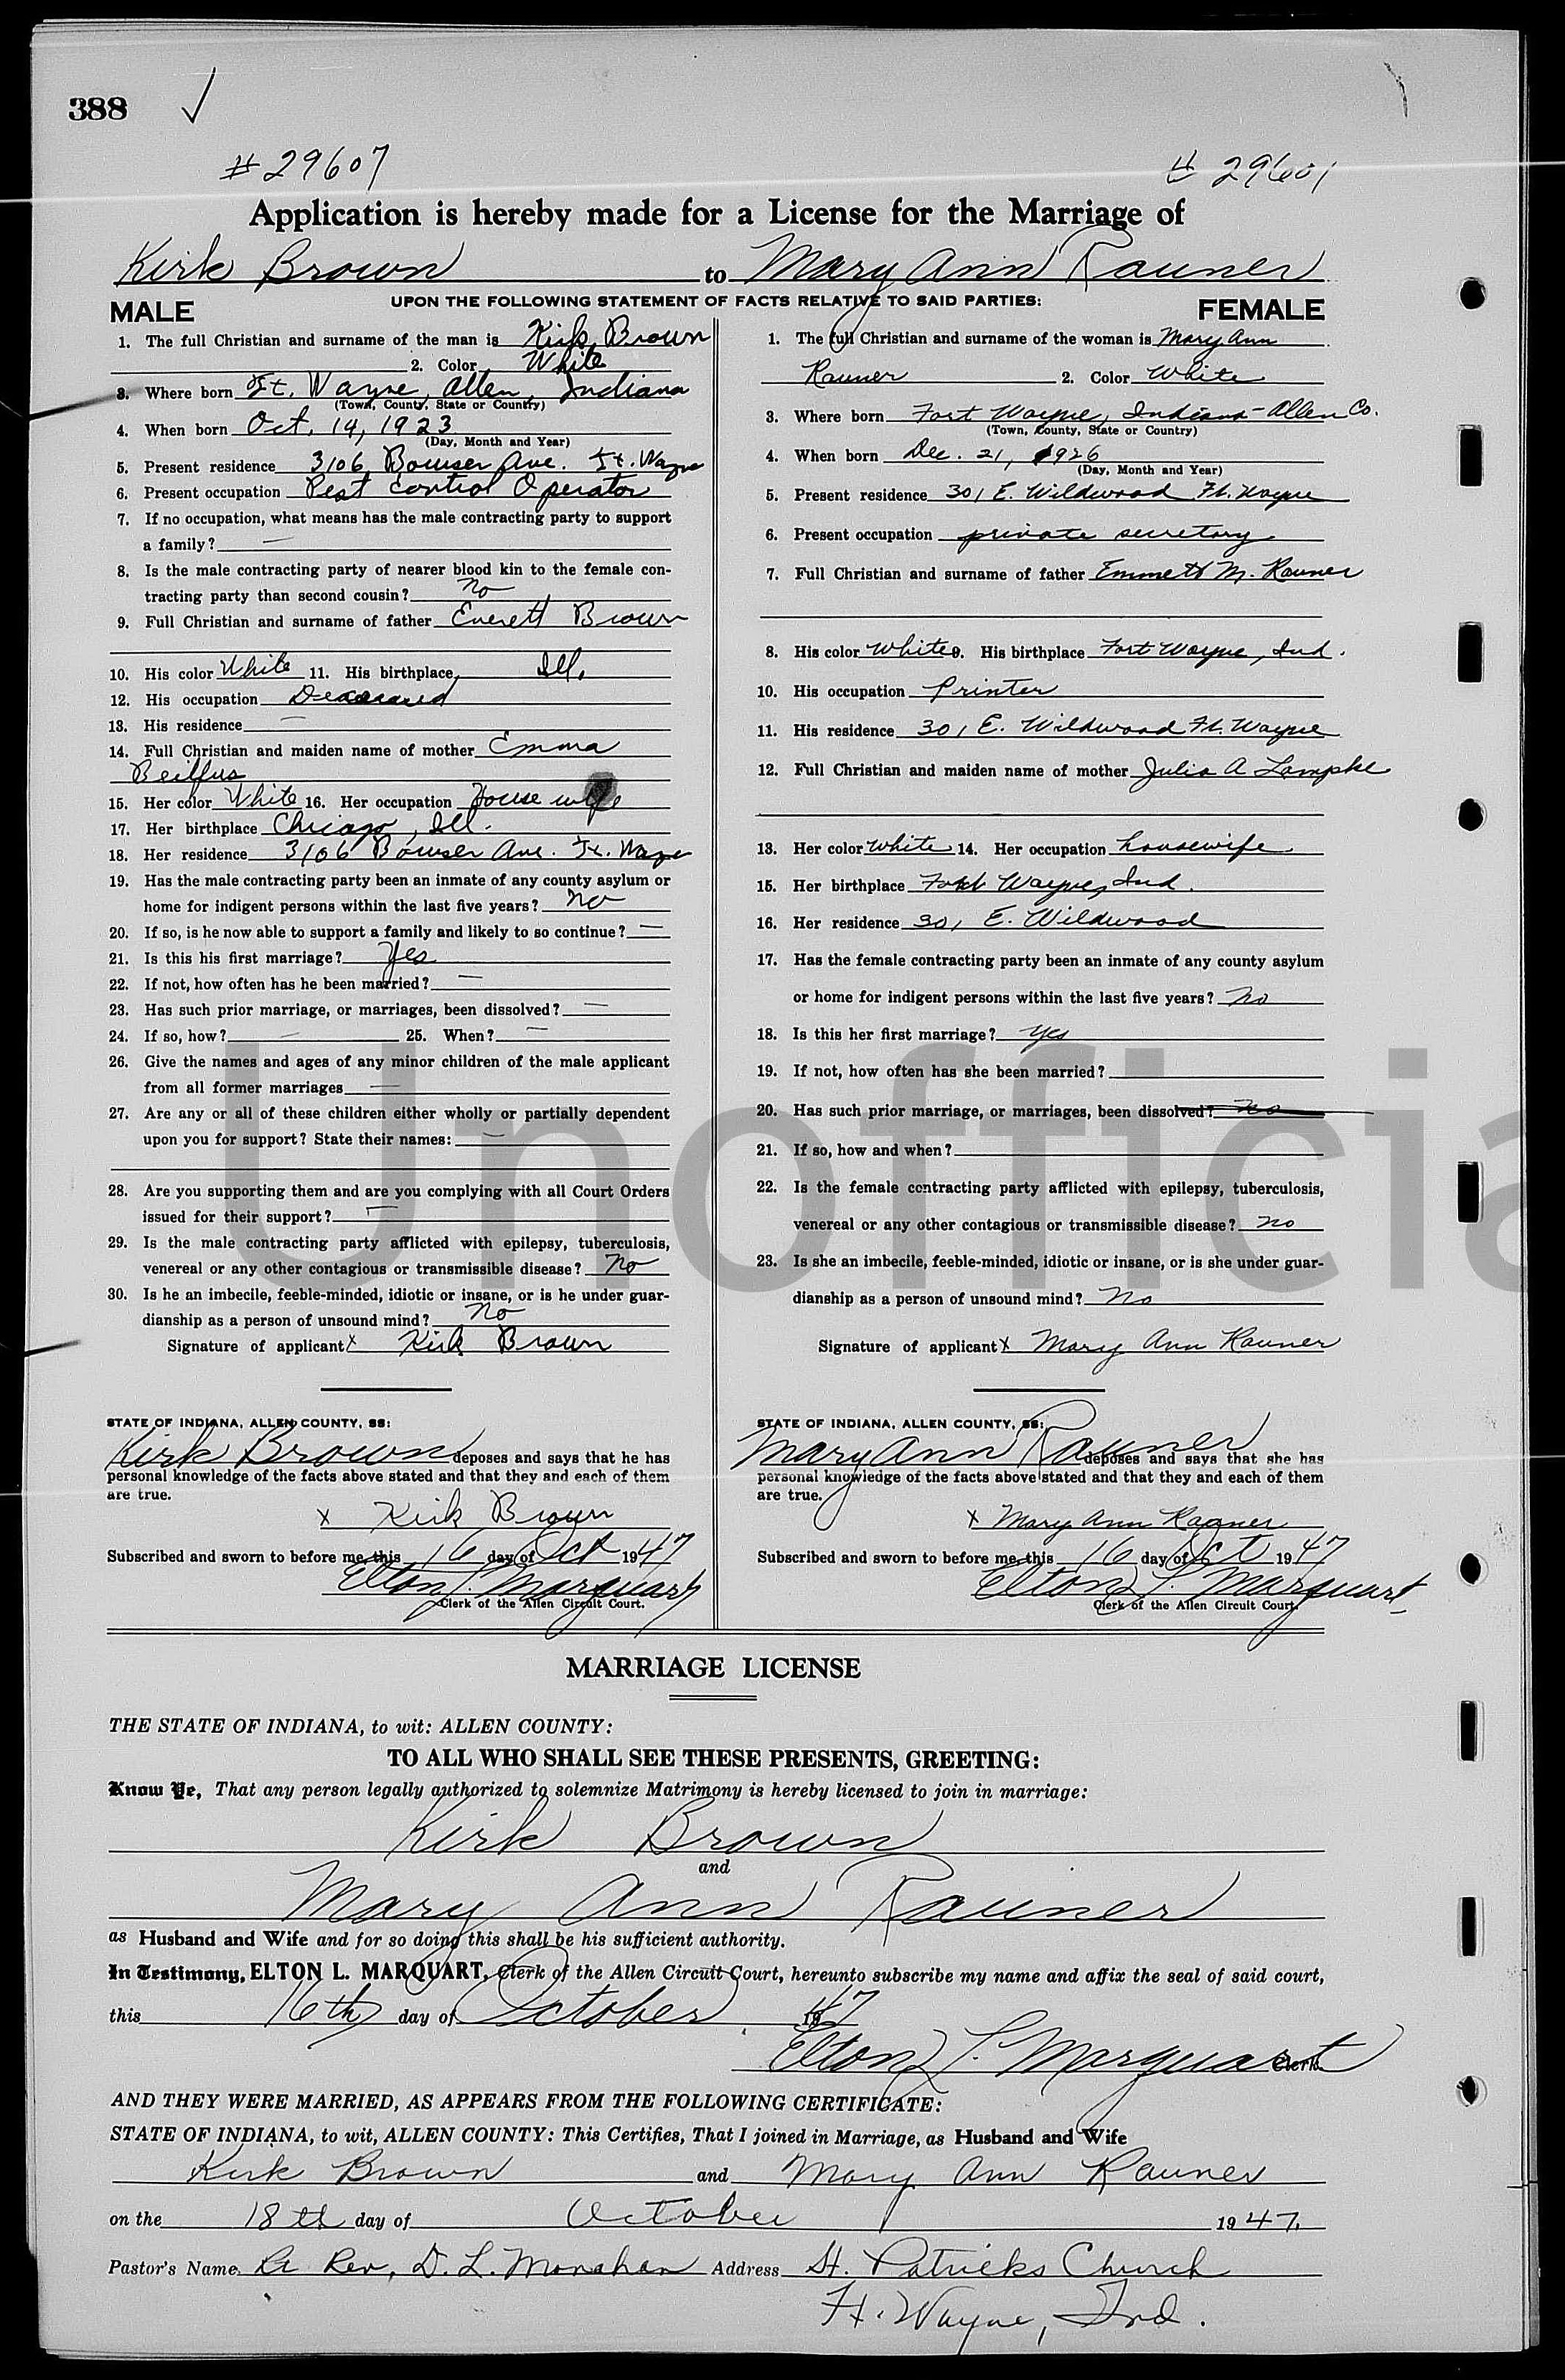 388 ✓
#29607 # 29601
Application is hereby made for a License for the Marriage of
Kirk Brown to Mary Ann Rauner
UPON THE FOLLOWING STATEMENT OF FACTS RELATIVE TO SAID PARTIES:
MALE
1. The full Christian and surname of the man is Kirk Brown
2. Color White
3. Where born Ft. Wayne, Allen, Indiana
(Town, County, State or Country)
4. When born Oct. 14, 1923
(Day, Month and Year)
5. Present residence 3106 Bowser Ave. Ft. Wayne
6. Present occupation Pest Control Operator
7. If no occupation, what means has the male contracting party to support
a family? —
8. Is the male contracting party of nearer blood kin to the female con-
tracting party than second cousin? No
9. Full Christian and surname of father Everett Brown
10. His color White 11. His birthplace Ill.
12. His occupation Deceased
13. His residence —
14. Full Christian and maiden name of mother Emma
Beilfus
15. Her color White 16. Her occupation House wife
17. Her birthplace Chicago, Ill.
18. Her residence 3106 Bowser Ave. Ft. Wayne
19. Has the male contracting party been an inmate of any county asylum or
home for indigent persons within the last five years? No
20. If so, is he now able to support a family and likely to so continue? —
21. Is this his first marriage? Yes
22. If not, how often has he been married? —
23. Has such prior marriage, or marriages, been dissolved? —
24. If so, how? — 25. When? —
26. Give the names and ages of any minor children of the male applicant
from all former marriages —
27. Are any or all of these children either wholly or partially dependent
upon you for support? State their names: —
28. Are you supporting them and are you complying with all Court Orders
issued for their support? —
29. Is the male contracting party afflicted with epilepsy, tuberculosis,
venereal or any other contagious or transmissible disease? No
30. Is he an imbecile, feeble-minded, idiotic or insane, or is he under guar-
dianship as a person of unsound mind? No
Signature of applicant x Kirk Brown
STATE OF INDIANA, ALLEN COUNTY, SS:
Kirk Brown deposes and says that he has
personal knowledge of the facts above stated and that they and each of them
are true.
x Kirk Brown
Subscribed and sworn to before me, this 16 day of Oct 1947
Elton L. Marquart
Clerk of the Allen Circuit Court.
FEMALE
1. The full Christian and surname of the woman is Mary Ann
Rauner 2. Color White
3. Where born Fort Wayne, Indiana - Allen Co.
(Town, County, State or Country)
4. When born Dec. 21, 1926
(Day, Month and Year)
5. Present residence 301 E. Wildwood Ft. Wayne
6. Present occupation private secretary
7. Full Christian and surname of father Emmett M. Rauner
8. His color White 9. His birthplace Fort Wayne, Ind.
10. His occupation Printer
11. His residence 301 E. Wildwood Ft. Wayne
12. Full Christian and maiden name of mother Julia A Lampke
13. Her color White 14. Her occupation housewife
15. Her birthplace Fort Wayne, Ind.
16. Her residence 301 E. Wildwood
17. Has the female contracting party been an inmate of any county asylum
or home for indigent persons within the last five years? No
18. Is this her first marriage? Yes
19. If not, how often has she been married?
20. Has such prior marriage, or marriages, been dissolved? No
21. If so, how and when?
22. Is the female contracting party afflicted with epilepsy, tuberculosis,
venereal or any other contagious or transmissible disease? No
23. Is she an imbecile, feeble-minded, idiotic or insane, or is she under guar-
dianship as a person of unsound mind? No
Signature of applicant x Mary Ann Rauner
STATE OF INDIANA, ALLEN COUNTY, SS:
Mary Ann Rauner deposes and says that she has
personal knowledge of the facts above stated and that they and each of them
are true.
x Mary Ann Rauner
Subscribed and sworn to before me, this 16 day of Oct 1947
Elton L. Marquart
Clerk of the Allen Circuit Court.
MARRIAGE LICENSE
THE STATE OF INDIANA, to wit: ALLEN COUNTY:
TO ALL WHO SHALL SEE THESE PRESENTS, GREETING:
Know Ye, That any person legally authorized to solemnize Matrimony is hereby licensed to join in marriage:
Kirk Brown
and
Mary Ann Rauner
as Husband and Wife and for so doing this shall be his sufficient authority.
In Testimony, ELTON L. MARQUART, Clerk of the Allen Circuit Court, hereunto subscribe my name and affix the seal of said court,
this 16th day of October 1947
Elton L. Marquart Clerk.
AND THEY WERE MARRIED, AS APPEARS FROM THE FOLLOWING CERTIFICATE:
STATE OF INDIANA, to wit, ALLEN COUNTY: This Certifies, That I joined in Marriage, as Husband and Wife
Kirk Brown and Mary Ann Rauner
on the 18th day of October 1947.
Pastor's Name Rt Rev. D. L. Monahan Address St. Patricks Church
Ft. Wayne, Ind.
Unofficia